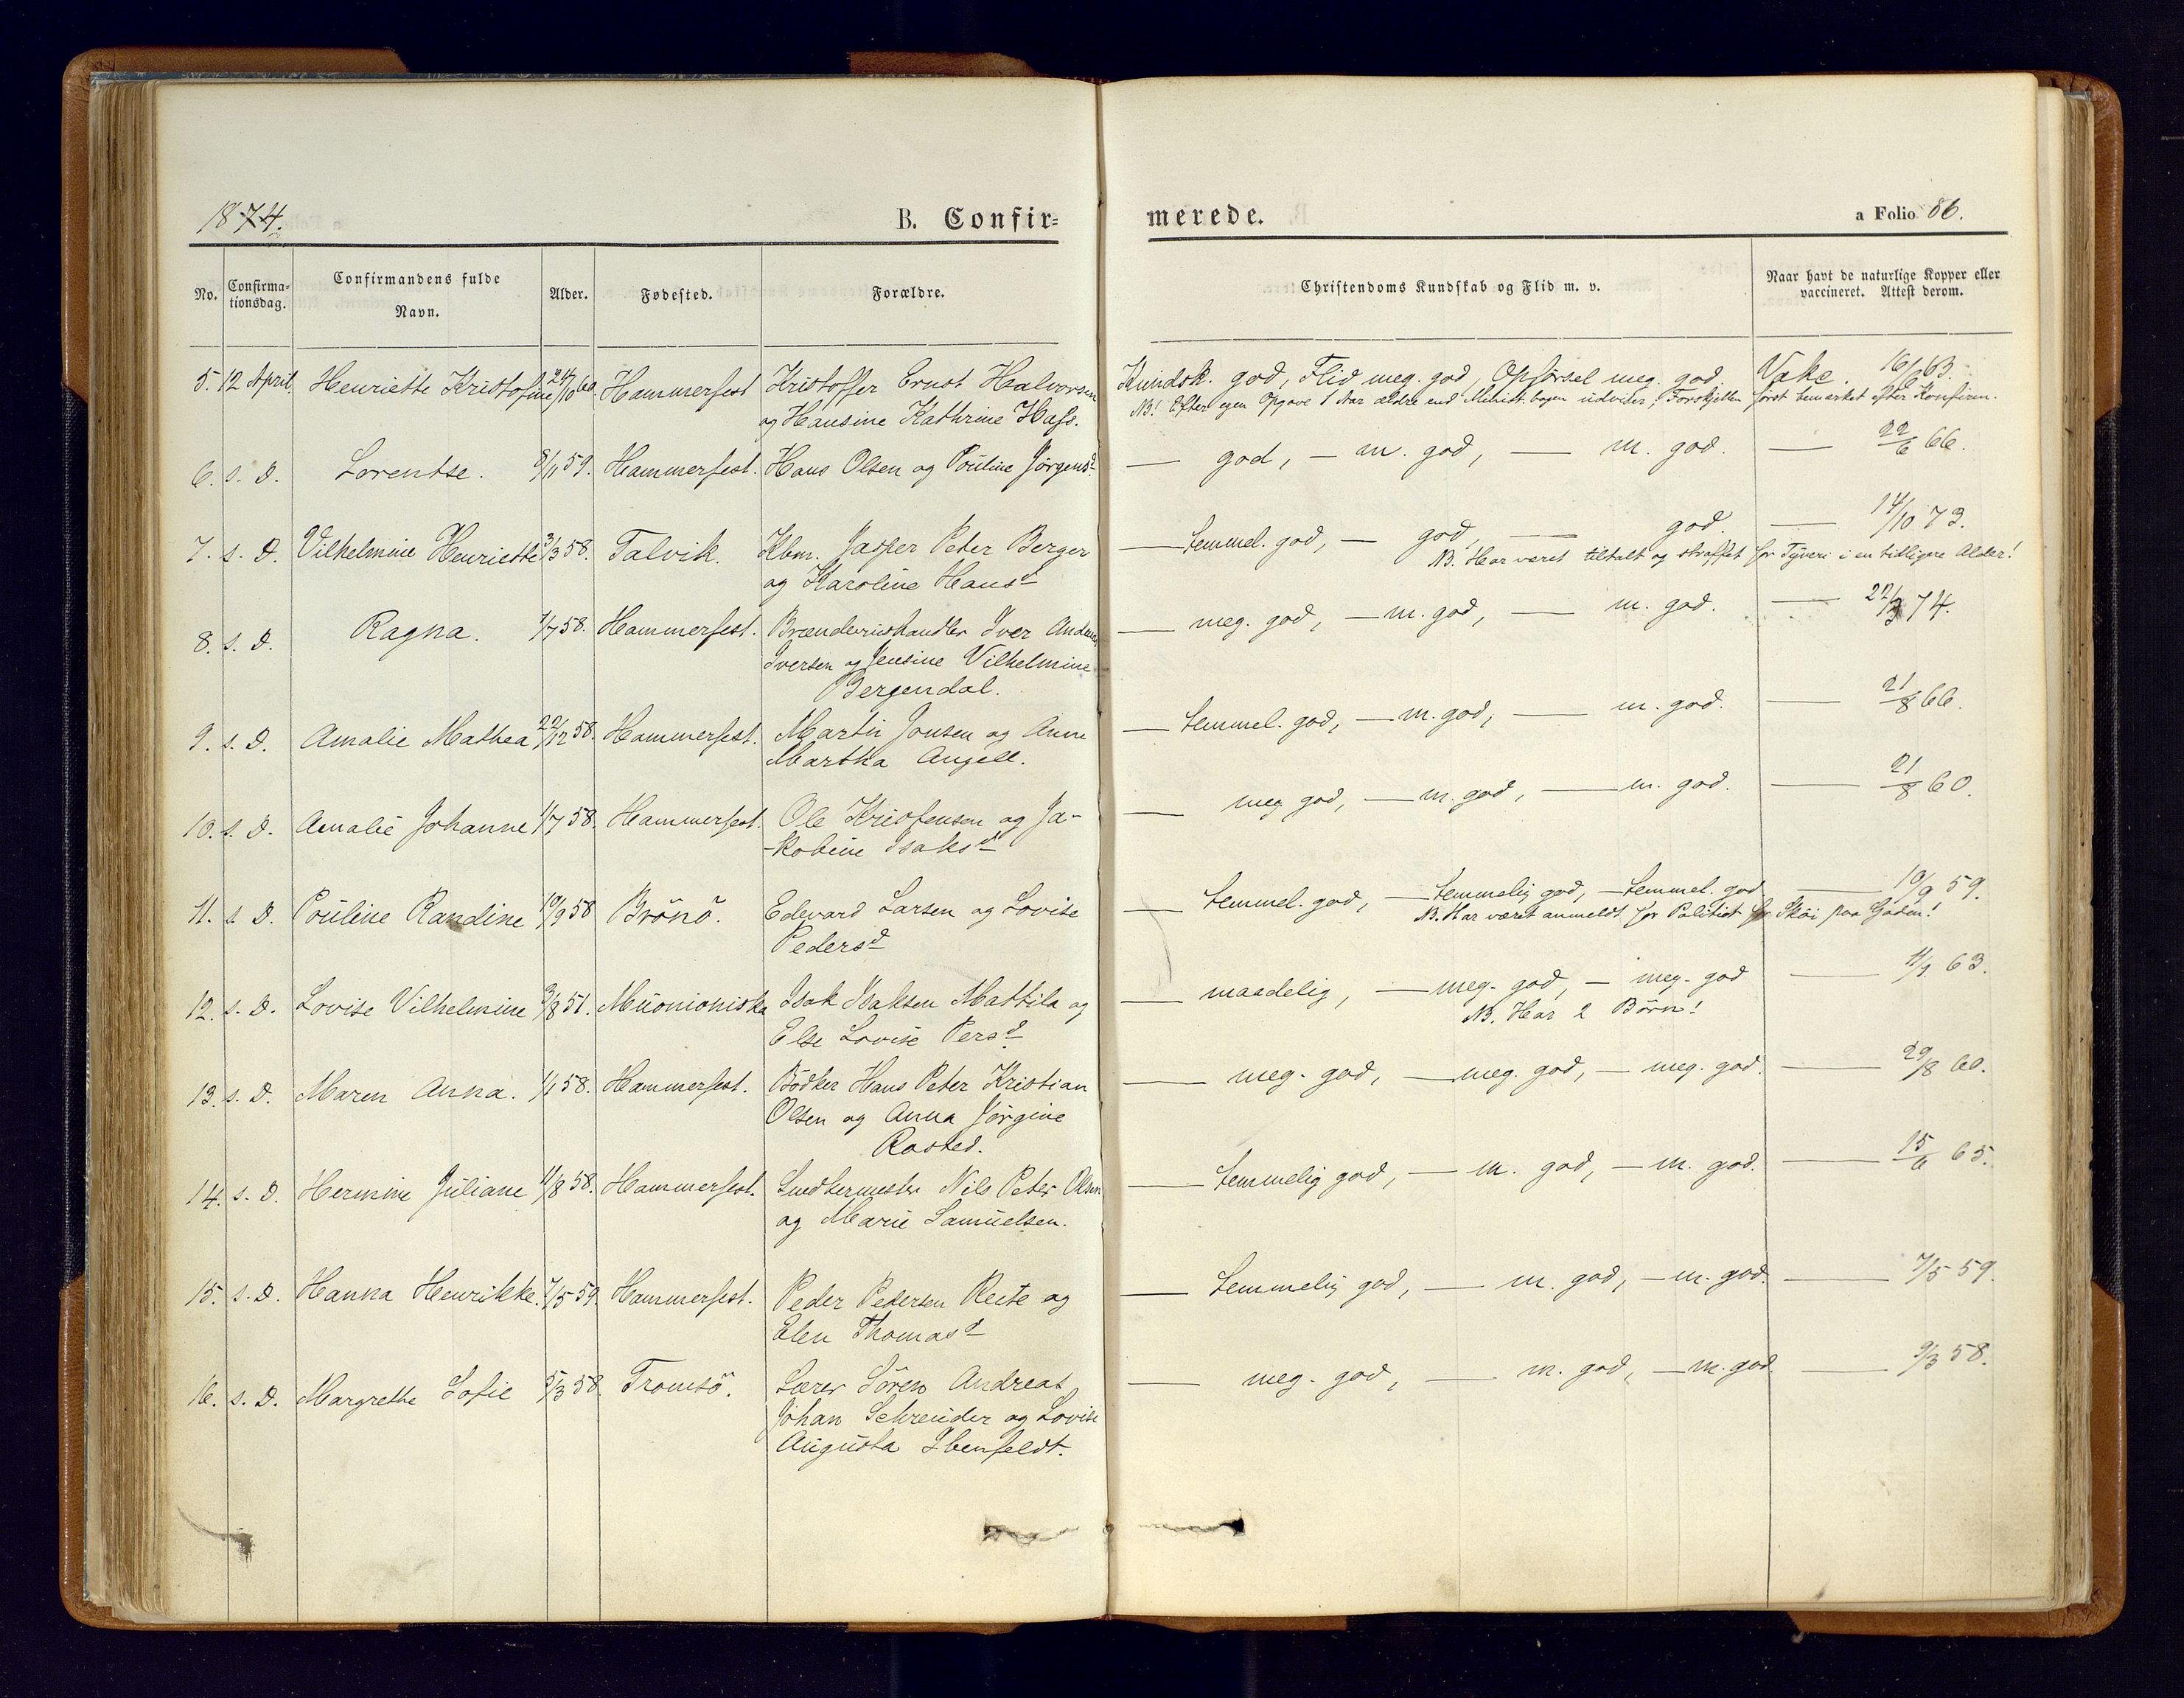 1874. B. Confir=
merede. a Folio 86.
No. Confirma=tionsdag. Confirmandens fulde Navn. Alder. Fødested. Forældre. Christendoms Kundskab og Flid m. v. Naar havt de naturlige Kopper eller vaccineret. Attest derom.
5. 12 April. Henriette Kristofine 24/10 60. Hammerfest Kristoffer Ernst Halvorsen Kundsk. god, Flid meg. god, Opførsel meg. god. Vake. 16/9 63.
og Hansine Kathrine Hass. NB! Efter egen Opgave 1 Aar ældre end Minist. bogen udviser; Forskjellen først bemærket efter Konfirm.
6. s. D. Lorentse. 8/11 59. Hammerfest. Hans Olsen og Pouline Jørgensd — god, — m. god, — m. god. — 22/6 66.
7. s. D. Vilhelmine Henriette 3/3 58. Talvik. Kbm. Jasper Peter Berger — temmel. god, — god, — god. — 14/10 73.
og Karoline Hansd NB. Har været tiltalt og straffet for Tyveri i en tidligere Alder!
8. s. D. Ragna. 7/7 58. Hammerfest. Brændevinshandler Iver Andreas — meg. god, — m. god, — m. god. — 22/3 74.
Iversen og Jensine Vilhelmine
Bergendal.
9. s. D. Amalie Mathea 22/12 58. Hammerfest. Martin Jonsen og Anne — temmel. god, — m. god, — m. god. — 21/8 66.
Martha Angell.
10. s. D. Amalie Johanne 1/7 58. Hammerfest. Ole Kristensen og Ja- — meg god, — m. god, — m. god. — 21/8 60.
-kobine Isaksd
11. s. D. Pouline Randine 10/9 58 Brønø. Edevard Larsen og Lovise — temmel. god, — temmelig god, — temmel. god — 10/9 59.
Pedersd NB. Har været anmeldt for Politiet for Skøi paa Gaden!
12. s. D. Lovise Vilhelmine 3/8 51. Muonioniska Isak Isaksen Mattila og — maadelig, — meg. god, — meg. god — 11/9 63.
Else Lovise Persd NB. Har 2 Børn!
13. s. D. Maren Anna. 1/1 58. Hammerfest. Bødker Hans Peter Kristian — meg. god, — meg. god, — meg. god. — 29/8 60.
Olsen og Anna Jørgine
Rosted.
14. s. D. Hermine Juliane 11/8 58. Hammerfest. Snedkermester Nils Peter Olsen — temmelig god, — m. god, — m. god. — 15/6 65.
og Marie Samuelsen.
15. s. D. Hanna Henrikke. 7/5 59. Hammerfest. Peder Pedersen Reite og — temmelig god, — m. god, — m. god. — 7/5 59.
Elen Thomasd
16. s. D. Margrethe Sofie 5/3 58 Tromsø. Lærer Søren Andreas — meg. god, — m. god, — m. god. — 9/3 58.
Johan Schreuder og Lovise
Augusta Ibenfeldt.